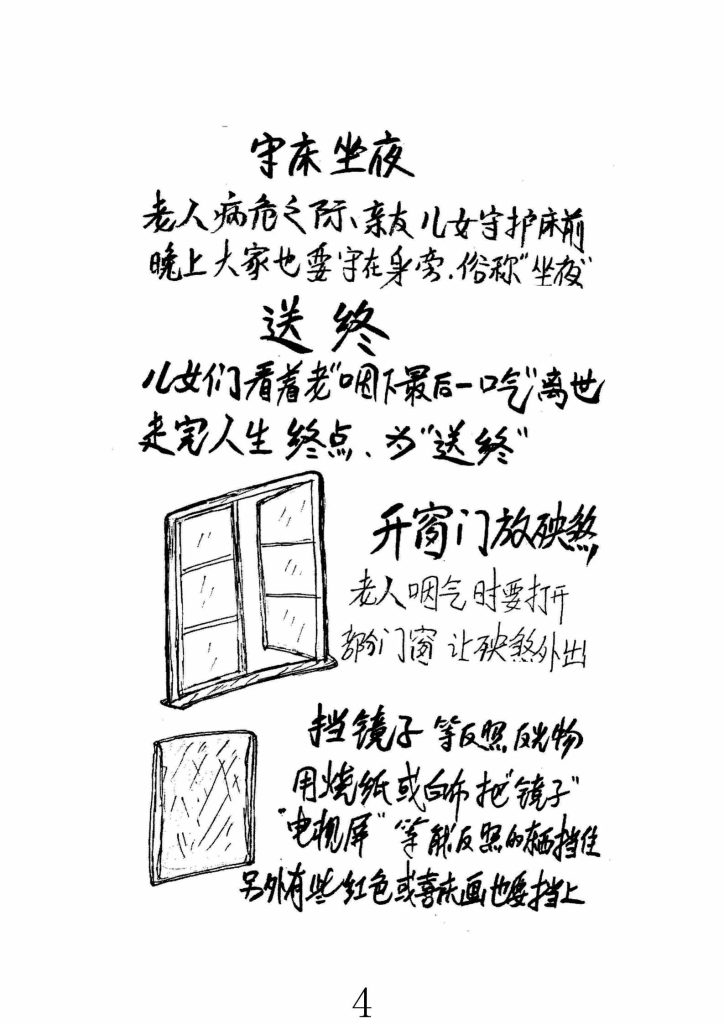 守床坐夜
老人病危之际、亲友儿女守护床前
晚上大家也要守在身旁.俗称"坐夜"
送终
儿女们看着老"咽下最后一口气"离世
走完人生终点、为"送终"
开窗门放殃煞
老人咽气时要打开
部分门窗让殃煞外出
挡镜子等反照反光物
用烧纸或白布把"镜子"
"电视屏"等能反照的东西挡住
另外有些红色或喜庆画也要挡上
4